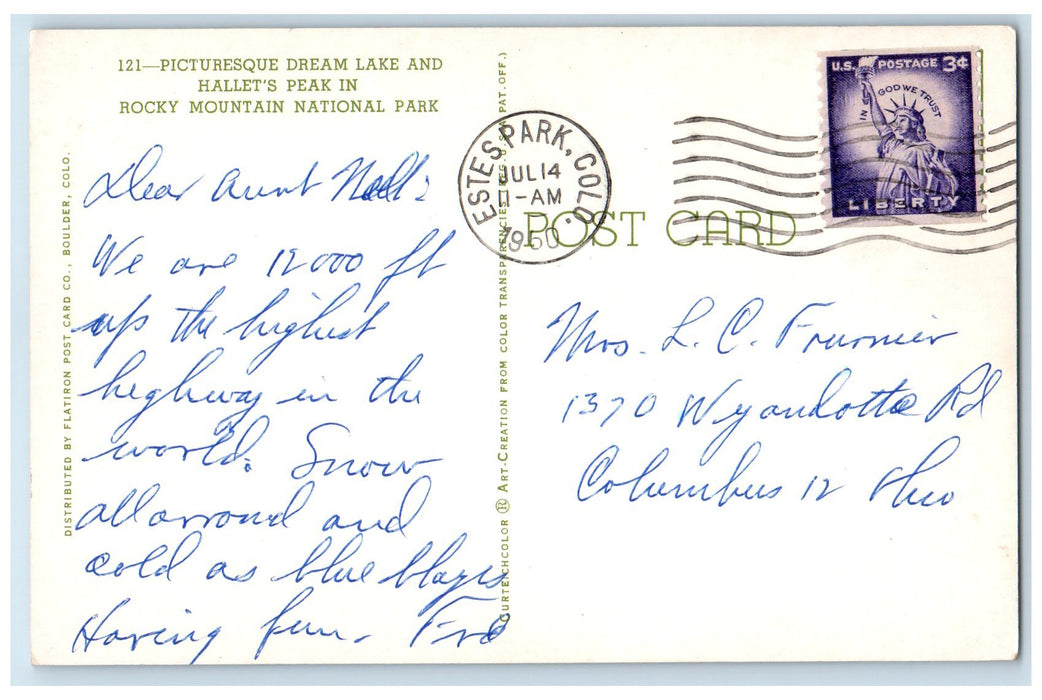 121—PICTURESQUE DREAM LAKE AND
HALLET'S PEAK IN
ROCKY MOUNTAIN NATIONAL PARK
Dear Aunt Nell:
We are 12000 ft
up the highest
highway in the
world. Snow
all around and
cold as blue blazes
Having fun. Fred
DISTRIBUTED BY FLATIRON POST CARD CO., BOULDER, COLO.
CURTEICHCOLOR ® ART-CREATION FROM COLOR TRANSPARENCIES REG. U.S.A. PAT. OFF.)
ESTES PARK, COLO.
JUL 14
11-AM
1960
POST CARD
U.S. POSTAGE 3¢
IN GOD WE TRUST
LIBERTY
Mrs. L. C. Fournier
1370 Wyandotte Rd
Columbus 12 Ohio